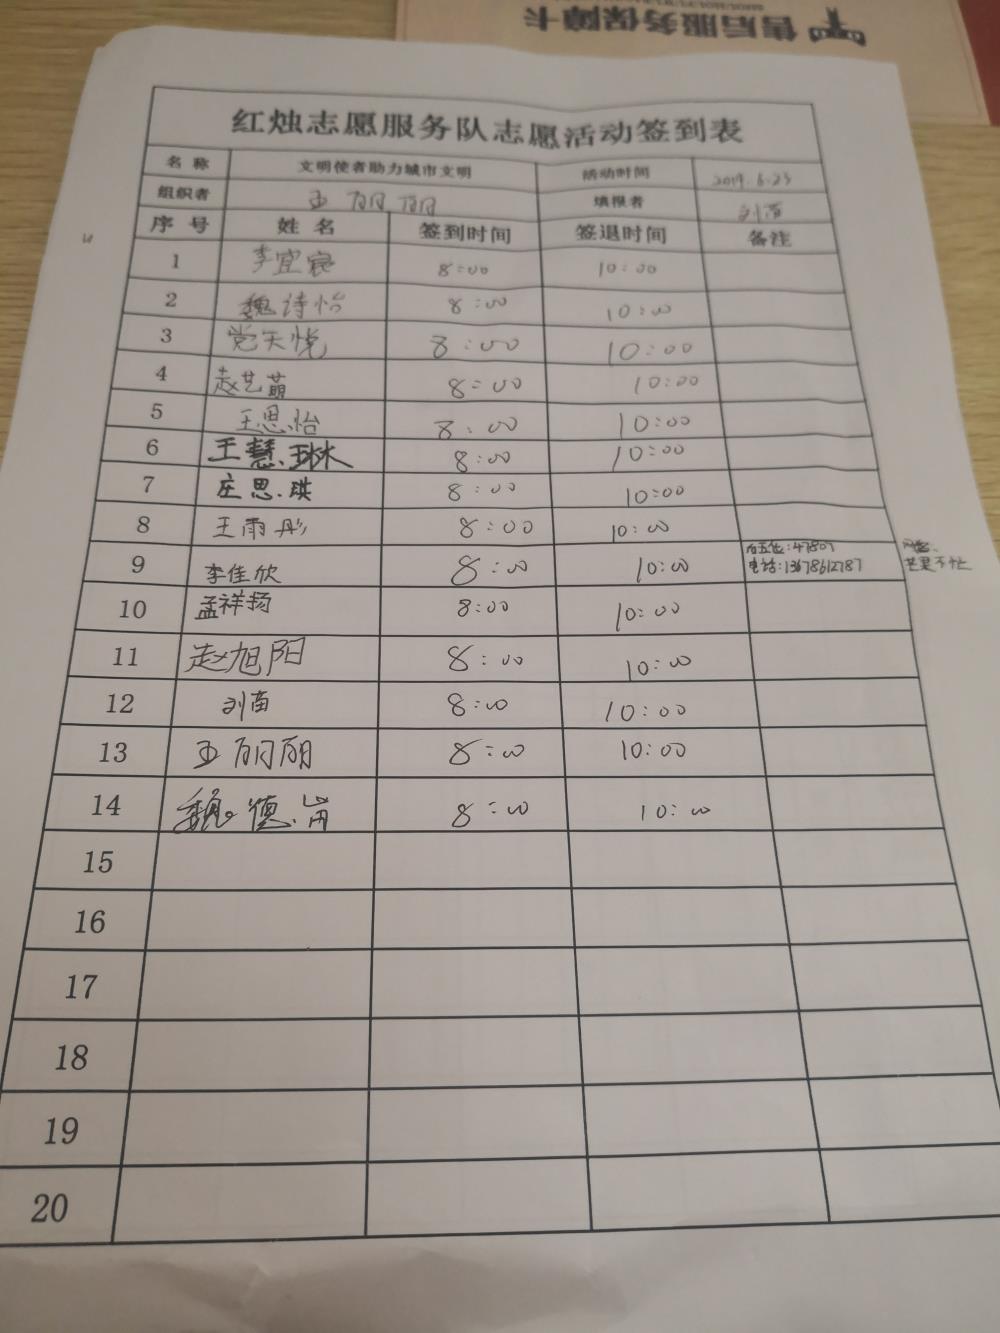 售后服务保障卡
红烛志愿服务队志愿活动签到表
名 称 文明使者助力城市文明 活动时间 2019.6.23
组织者 王丽丽 填报者 刘苗
序 号 姓 名 签到时间 签退时间 备注
1 李宜宸 8:00 10:00
2 魏诗怡 8:00 10:00
3 党天悦 8:00 10:00
4 赵艺萌 8:00 10:00
5 王思怡 8:00 10:00
6 王慧琳 8:00 10:00
7 庄思琪 8:00 10:00
8 王雨彤 8:00 10:00
9 李佳欣 8:00 10:00 后五位:47807
电话:13678612787
10 孟祥扬 8:00 10:00
11 赵旭阳 8:00 10:00
12 刘苗 8:00 10:00
13 王丽丽 8:00 10:00
14 魏德 8:00 10:00
15
16
17
18
19
20